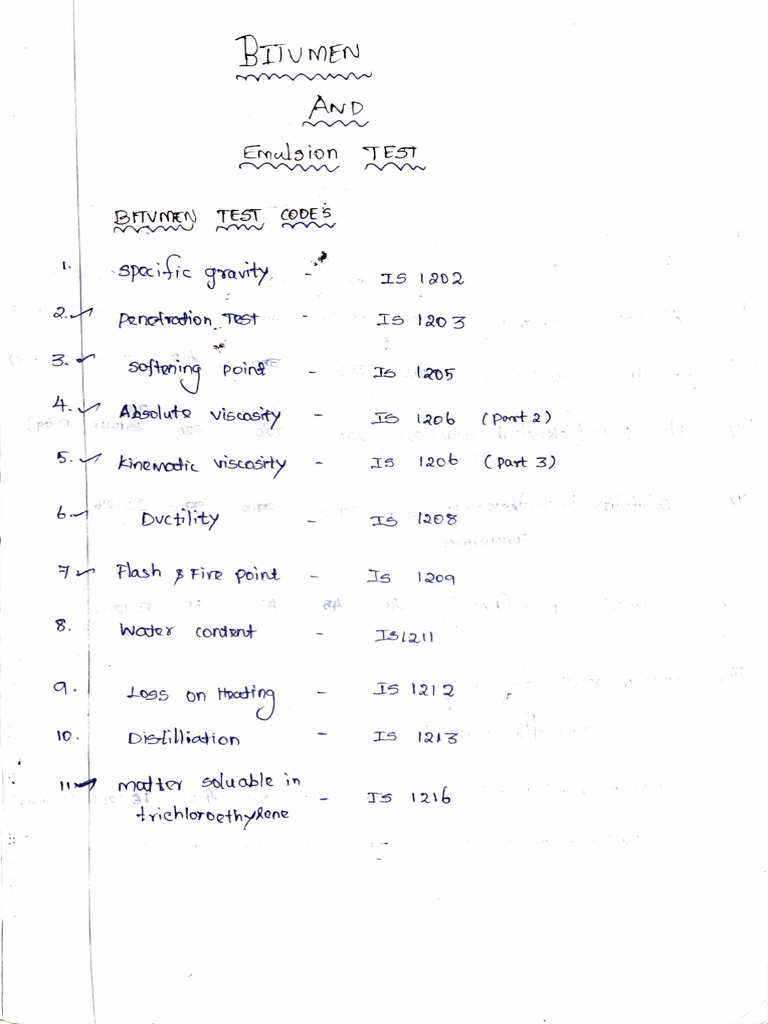 BITUMEN
AND
Emulsion TEST
BITUMEN TEST CODE'S
1. specific gravity - IS 1202
2. ✓ penetration Test - IS 1203
3. ✓ softening point - IS 1205
4. ✓ Absolute viscosity - IS 1206 (part 2)
5. ✓ kinematic viscosity - IS 1206 (part 3)
6. ✓ Ductility - IS 1208
7 ✓ Flash & Fire point - IS 1209
8. Water content - IS1211
9. Loss on Heating - IS 1212
10. Distilliation - IS 1213
11 ✓ matter soluable in
trichloroethylene - IS 1216